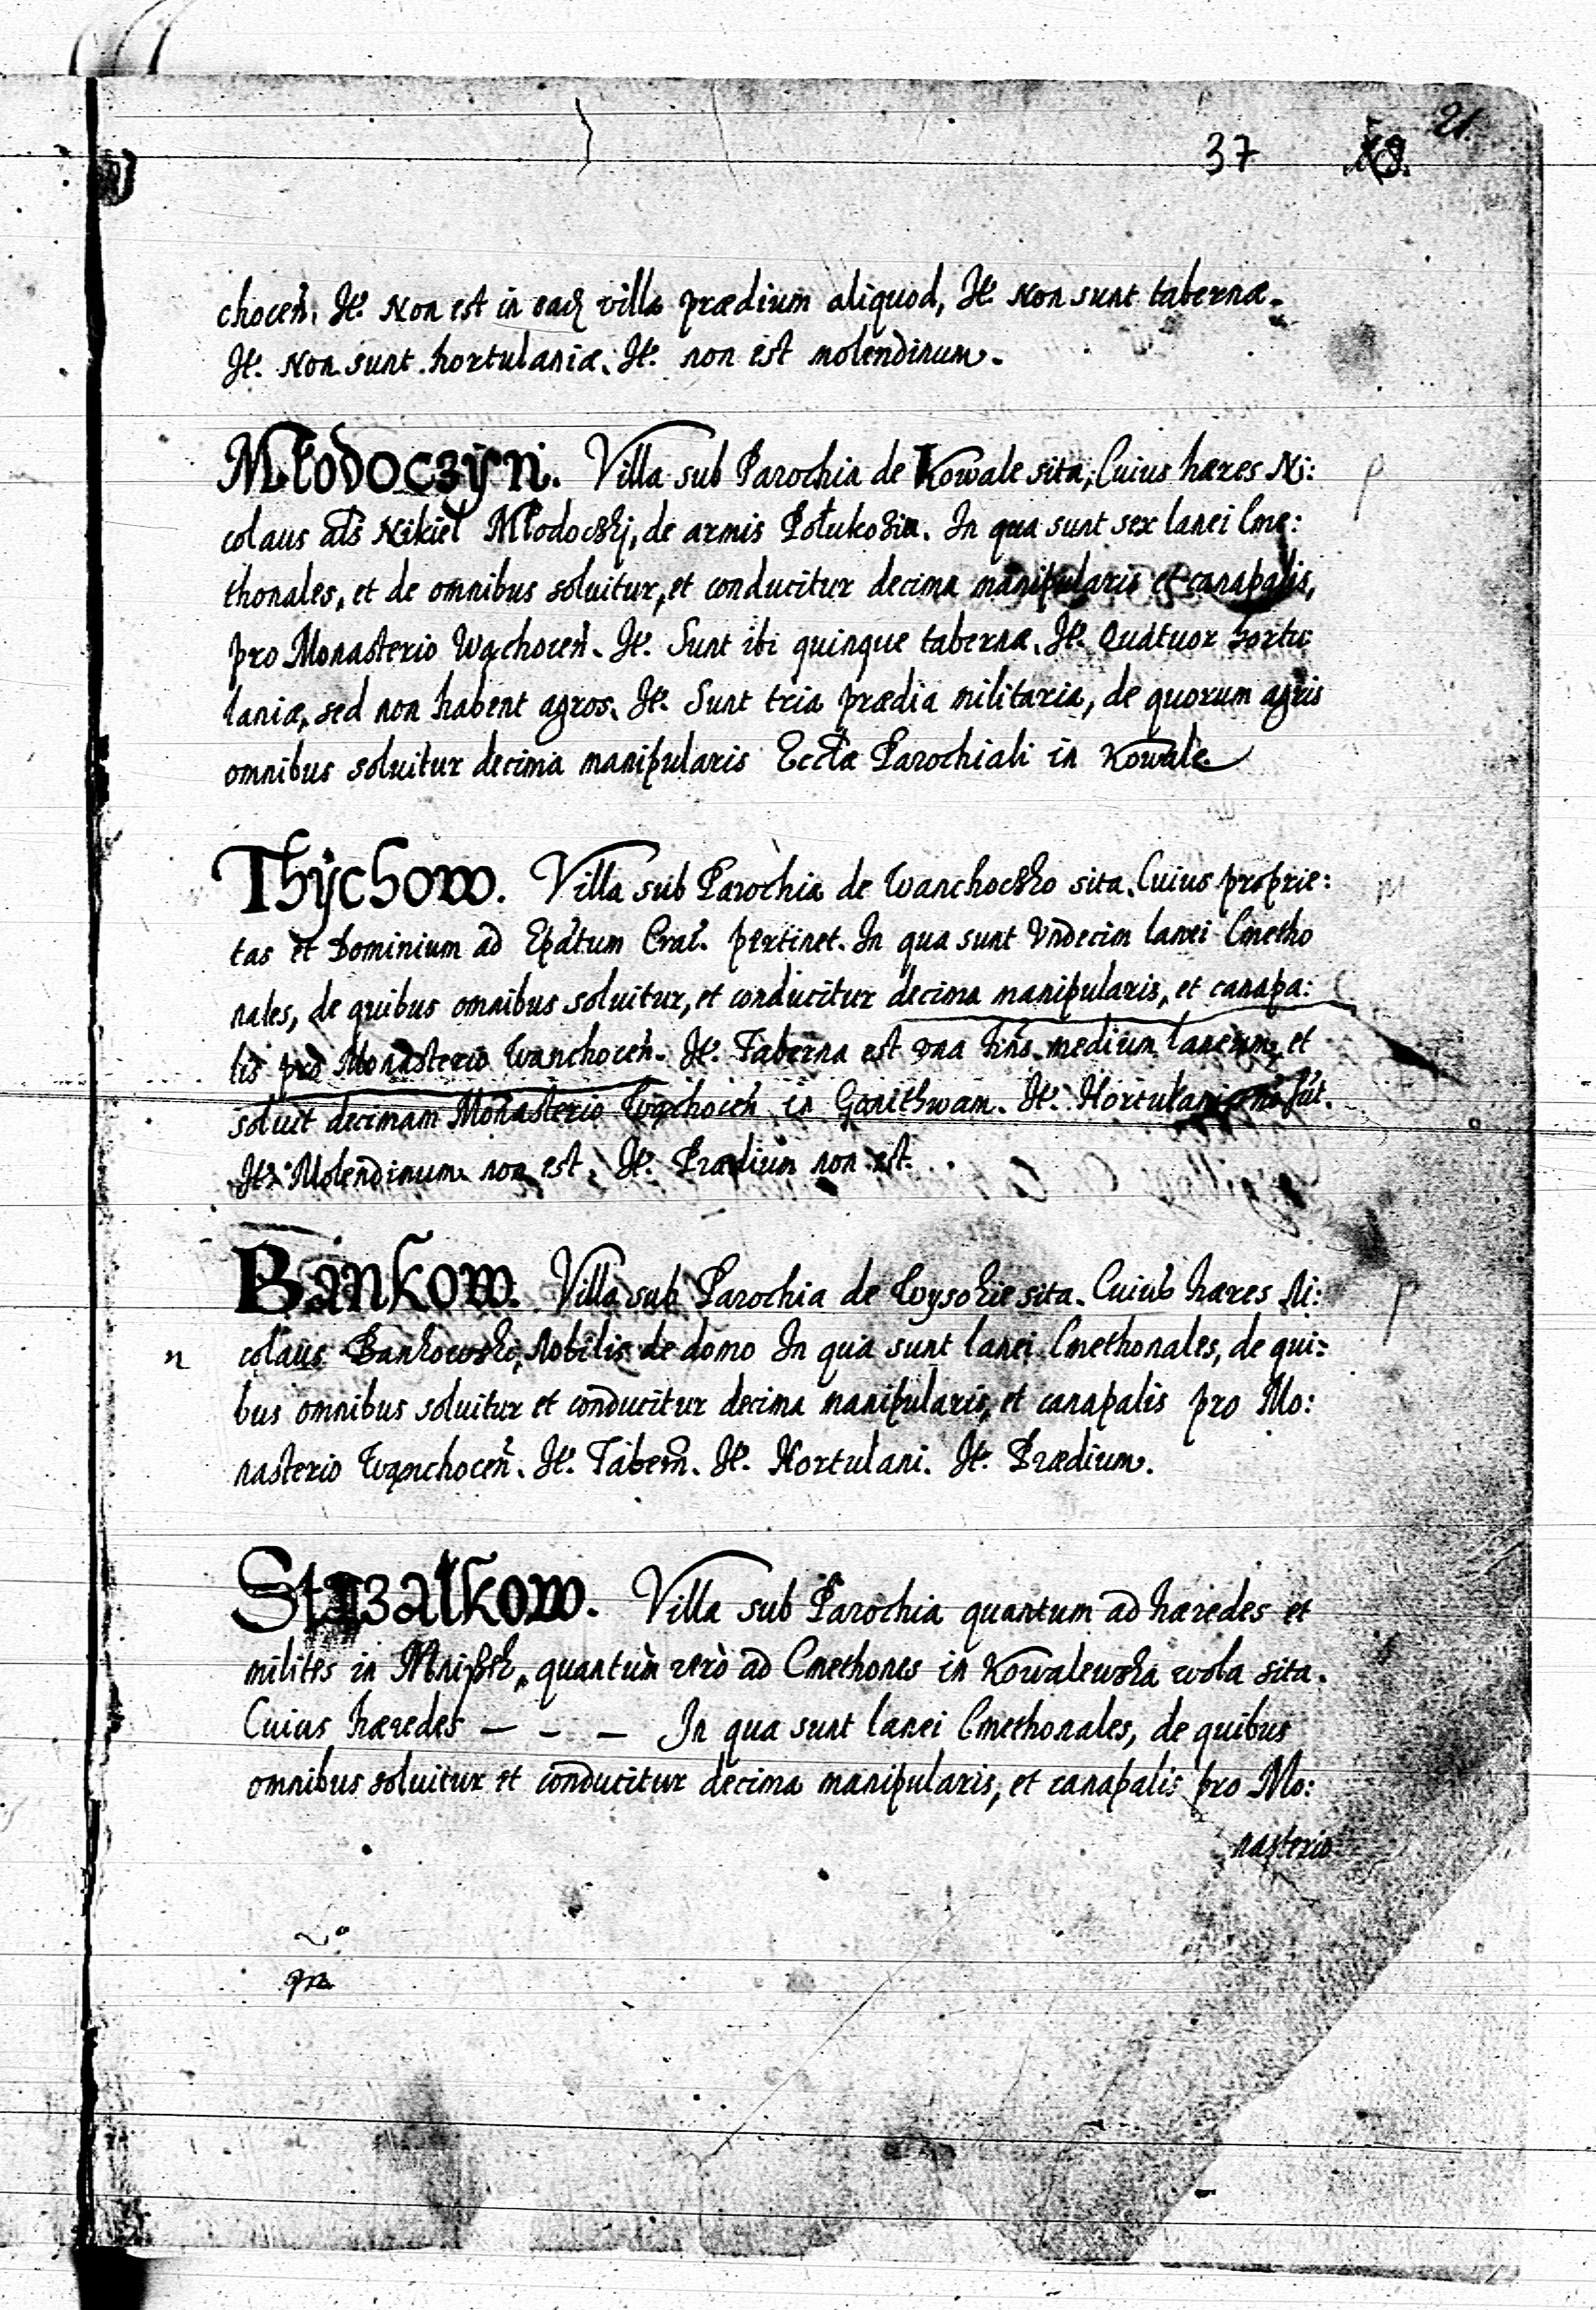 21.
37
choceñ. It. Non est in eadē villa prædium aliquod, It. Non sunt tabernæ.
It. Non sunt hortulaniæ. It. non est molendinum.
Młodoczyn. Villa sub Parochia de Kowale sita, Cuius hæres Ni:
colaus als Nikiel Młodocski, de armis Połukozia. In qua sunt sex lanei Cme:
thonales, et de omnibus soluitur, et conducitur decima manipularis et canapalis,
pro Monasterio Wąchoceñ. It. Sunt ibi quinque tabernæ. It. Quatuor hortu:
laniæ, sed non habent agros. It. Sunt tria prædia militaria, de quorum agris
omnibus soluitur decima manipularis Ecclæ Parochiali in Kowale
Thychow. Villa sub Parochia de Wanchoczko sita. Cuius proprie:
tas et Dominium ad Epatum Crac. pertinet. In qua sunt Vndecim lanei Cmetho
nales, de quibus omnibus soluitur, et conducitur decima manipularis, et canapa:
lis pro Monasterio Wanchoceñ. It. Taberna est vna hñs medium laneum, et
soluit decimam Monasterio Wąchoceñ in Gonithwam. It. Hortulani nō sūt.
It. Molendinum non est. It. Prædium non est.
Bankow. Villa sub Parochia de Wysokie sita. Cuius hæres Ni:
n colaus Bankowski, Nobilis de domo In qua sunt lanei Cmethonales, de qui:
bus omnibus soluitur et conducitur decima manipularis, et canapalis pro Mo:
nasterio Wąnchoceñ. It. Tabern. It. Hortulani. It. Prædium.
Strzalkow. Villa sub Parochia quantum ad hæredes et
milites in quantùm verò ad Cmethones in Kowalewska wola sita.
Cuius hæredes — – — In qua sunt lanei Cmethonales, de quibus
omnibus soluitur et conducitur decima manipularis, et canapalis pro Mo:
nasterio